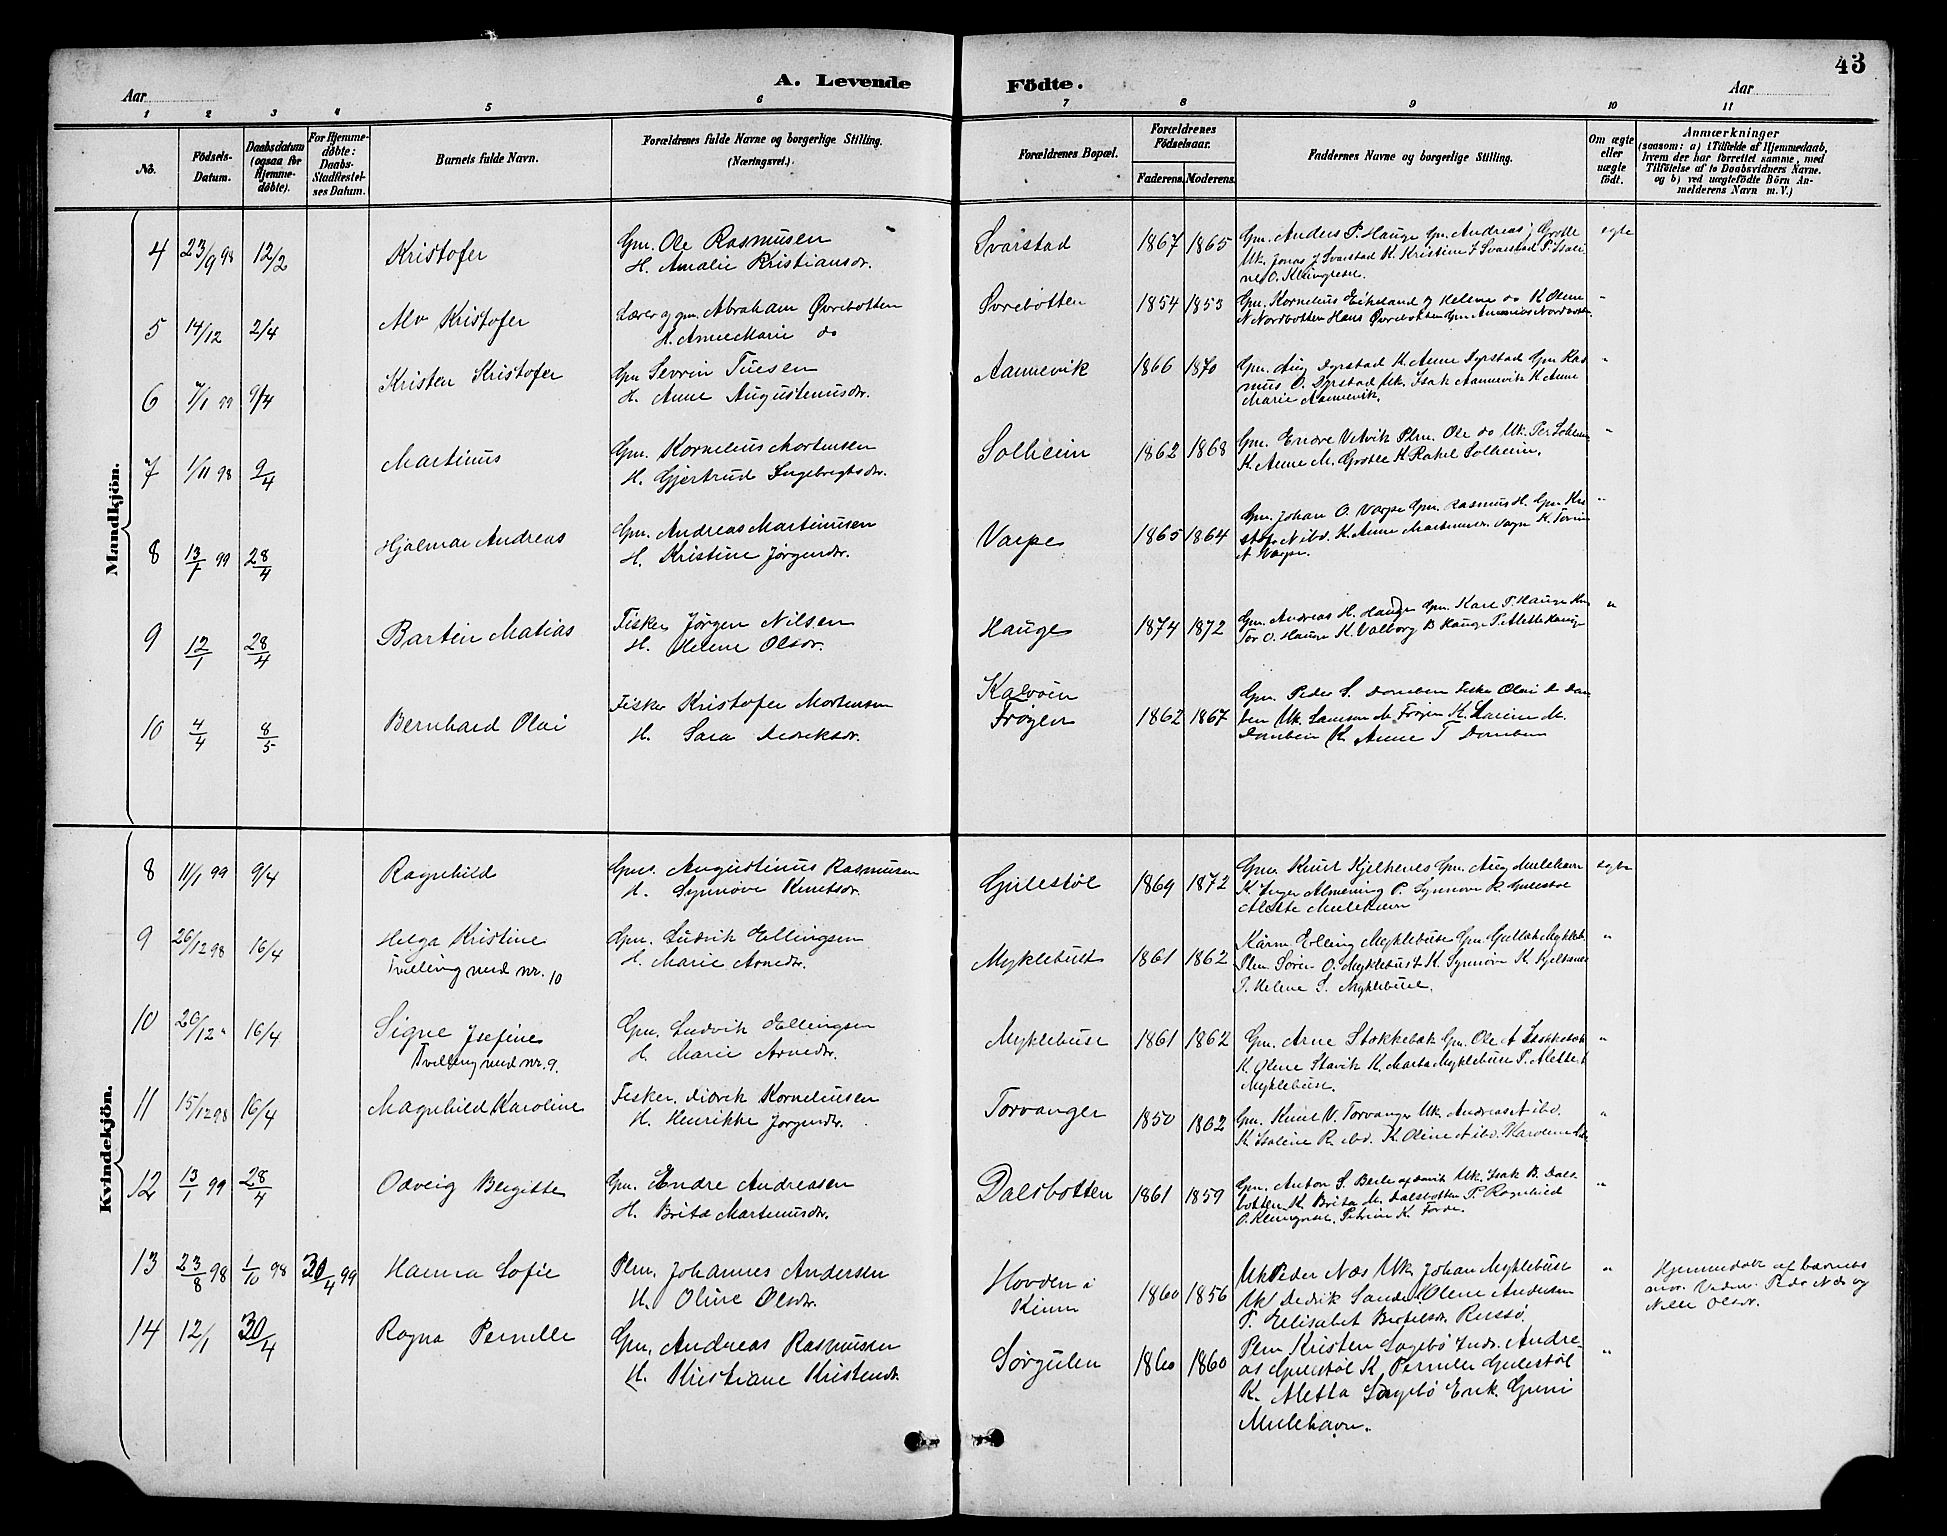 43
A. Levende Födte.
Aar
Aar
1 2 3 4 5 6 7 8 9 10 11
No.
Födsels-Datum.
Daabsdatum (ogsaa for Hjemme-döbte).
For Hjemme-döbte: Daabs-Stadfæstel-ses Datum.
Barnets fulde Navn.
Forældrenes fulde Navne og borgerlige Stilling.
(Næringsvei.)
Forældrenes Bopæl.
Forældrenes Födselsaar.
Faderens. Moderens.
Faddernes Navne og borgerlige Stilling.
Om ægte eller uægte födt.
Anmærkninger
(saasom: a) i Tilfælde af Hjemmedaab, hvem der har forrettet samme, med Tilföielse af to Daabsvidners Navne. og b) ved uægtefödte Börn An-melderens Navn m. V.)
Mandkjön.
4 23/9 98 12/2 Kristofer
Gm. Ole Rasmusen
H. Amalie Kristiansdr.
Svarstad 1867 1865
Gm. Anders P. Hauge Gm. Andreas J Grotle
Uk. Jonas J Svarstad K. Kristine J Svarstad P. Isali-
ne O. Kleingrese.
egte
5 14/12 2/4 Alv Kristofer
Lærer og gm. Abraham Øvrebotten
H. Anne Marie do
Øvrebotten 1854 1853
Gm. Kornelius Eikeland og Helene do K. Oline
N Nordbotten Hans Øvrebotten Gm. Ananias Nordbotten
"
6 7/1 99 9/4 Kristen Kristofer
Gm Sevrin Tuesen
H. Anne Augustinusdr.
Aannevik 1866 1870
Gm. Aug Dyrstad K. Anne Dyrstad Gm Ras-
mus O. Dyrstad Uk. Isak Aannevik K Anne
Marie Aannevik.
"
7 1/11 98 9/4 Martinus
Gm. Kornelius Mortensen
H. Gjertrud Ingebregtsdr.
Solheim 1862 1868
Gm. Endre Vetvik Plm. Ole do Uk. Per Solheim
K. Anne M. Grotle K Rakel Solheim.
"
8 13/1 99 28/4 Hjalmar Andreas
Gm. Andreas Martinusen
H. Kristine Jørgensdr.
Varpe 1865 1864
Gm. Johan O. Varpe Gm. Rasmus H. Gm. Kri-
stofer N ibd. K. Anne Martinusdr. Varpe K.
A Varpe.
"
9 12/1 28/4 Bartin Matias
Fisker Jørgen Nilsen
H. Helene Olsdr.
Hauge 1874 1872
Gm. Andreas H. Hauge Gm. Karl P. Hauge
Tor O. Hauge K. Valborg B Hauge P. Alette Hauge
"
10 4/4 8/5 Bernhard Olai
Fisker Kristofer Mortensen
H. Sara Didriksdr.
Kalvøen
Frøyen 1862 1867
Gm. Peder S. Domben Fisker Olai D Dom-
ben Uk. Samson M. Frøyen K. M.
Domben K. Anne T Domben
Kvindekjön.
8 11/1 99 9/4 Ragnhild
Gm. Augustinus Rasmusen
H. Synnøve Knutsdr.
Gulestøl 1869 1872
Gm. Knut Kjelkenes Gm. Aug Mulehavn
K. Inger Almening P. Synnøve R. Gulestøl
Alette Mulehavn
egte
9 26/12 98 16/4 Helga Kristine
Tvilling med nr. 10
Gm. Ludvik Ellingsen
H. Marie Arnedr.
Myklebust 1861 1862
Kårm Elling Myklebust Gm. Gullak Mykleb.
Plm Søren O. Myklebust K. Synnøve K. Kjelkenes
P. Helene S. Myklebust.
"
10 26/12 " 16/4 Signe Josefine
Tvilling med nr. 9.
Gm. Ludvik Ellingsen
H. Marie Arnedr.
Myklebust 1861 1862
Gm. Arne Stokkebak Gm. Ole A Stokkebak
K. Oline Stavik K. Marta Myklebust P. Alette
Myklebust.
"
11 15/12 98 16/4 Magnhild Karoline
Fisker Didrik Korneliusen
H. Henrikke Jørgensdr.
Torvanger 1850 1862
Gm. Knut V. Torvanger Uk. Andreas A ibd.
K. Isaline R. ibd. K Oline A ibd. Karoline
"
12 13/1 99 28/4 Odveig Bergitte
Gm. Endre Andreasen
H. Brita Martinusdr.
Dalsbotten 1861 1859
Gm. Anton S. Berle Uk. Isak B. Dals-
botten K. Brita M. Dalsbotten P. Ragnhild
O. Kleingrese. Petrine K. Førde.
"
13 23/8 98 1/10 98 30/4 99 Hanna Sofie
Plm. Johannes Andersen
H. Oline Olsdr.
Hovden i
Kinn 1860 1856
Uk Peder Næs Uk. Johan Myklebust
Uk Didrik Sande. Oline Andersen
P. Elisabet Bertelsdr. Russø.
"
Hjemmedøbt af barnets
mor. Vidner Peder Næs og
Nille Olsdr.
14 12/1 30/4 Ragna Pernelle
Gm. Andreas Rasmusen
H. Kristiane Kristensdr.
Sørgulen 1860 1860
Plm Kristen Sagebø Indr. Andre-
as Gulestøl K. Pernille Gulestøl
K. Aletta Sagebø Enk. Guni
Mulehavn.
"